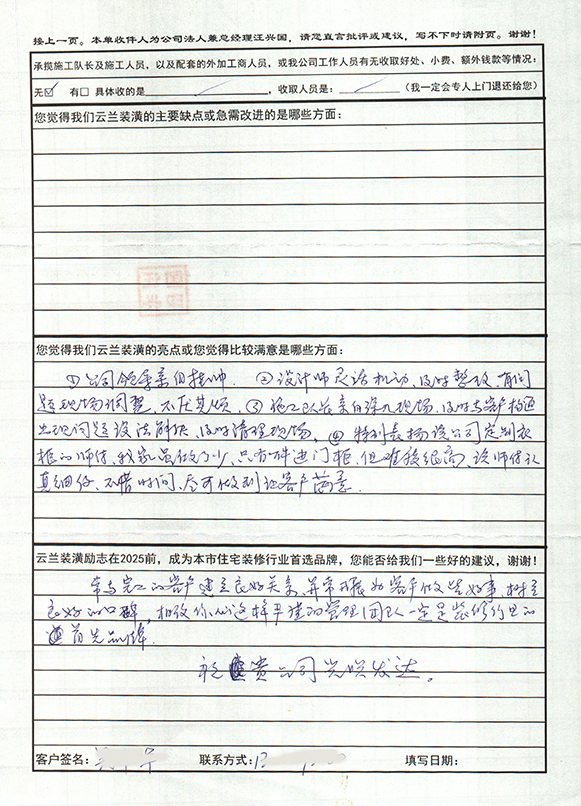 接上一页。本单收件人为公司法人兼总经理汪兴国，请您直言批评或建议，写不下时请附页。谢谢！
承揽施工队长及施工人员，以及配套的外加工商人员，或我公司工作人员有无收取好处、小费、额外钱款等情况：
无☑ 有□ 具体收的是 ，收取人员是： （我一定会专人上门退还给您）
您觉得我们云兰装潢的主要缺点或急需改进的是哪些方面：
您觉得我们云兰装潢的亮点或您觉得比较满意是哪些方面：
①公司领导亲自挂帅. ②设计师灵活机动、及时整改，有问
题现场调整，不厌其烦，③施工队长亲自深入现场，及时与客户沟通
出现问题设法解决，及时清理现场，④特别表扬该公司定制衣
柜的师傅，我家虽做了少，只有两进门柜，但难接很高，该师傅认
真细仔，不惜时间，尽可做到让客户满意.
云兰装潢励志在2025前，成为本市住宅装修行业首选品牌，您能否给我们一些好的建议，谢谢！
常与完工的客户建立良好关系，并常 为客户做些好事，树立
良好的口碑，相信你们这样 的管理团队一定是装修行业的
首先品牌
祝 贵公司兴旺发达。
客户签名： 联系方式： 填写日期：